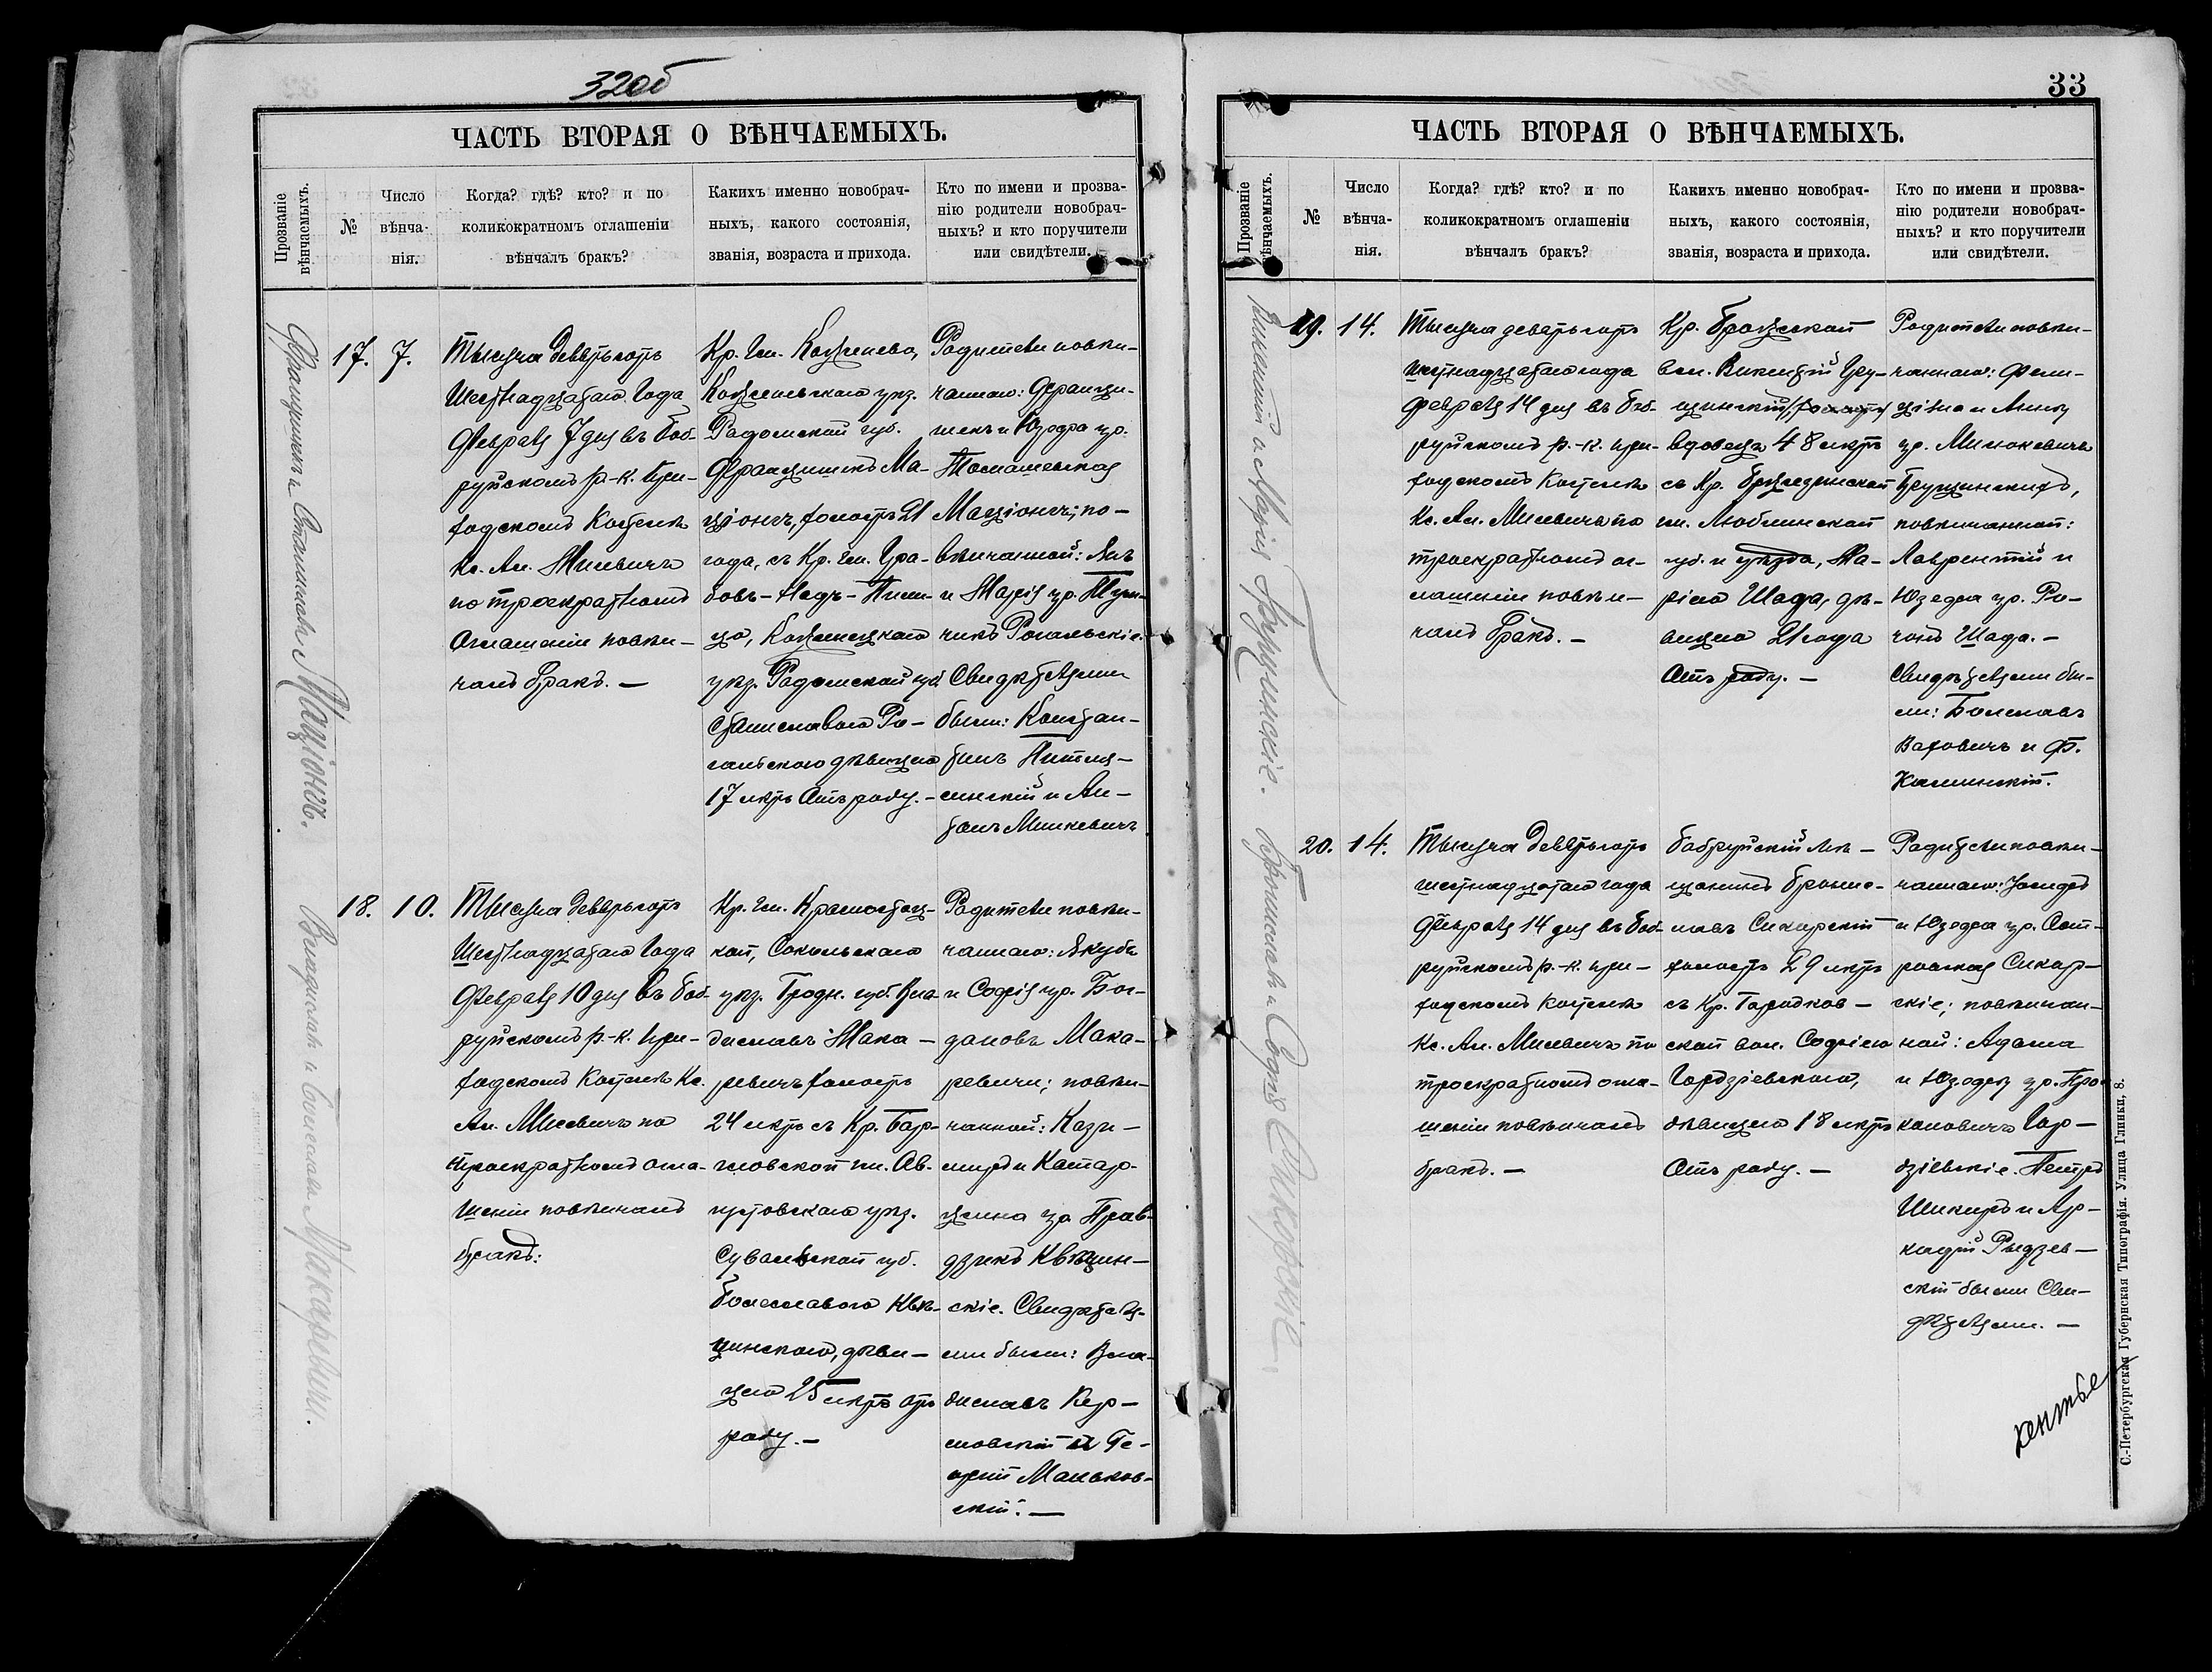 32об
ЧАСТЬ ВТОРАЯ О ВѢНЧАЕМЫХЪ.
Прозваніе вѣнчаемыхъ.
№
Число вѣнча-нія.
Когда? гдѣ? кто? и по
коликократномъ оглашеніи
вѣнчалъ бракъ?
Какихъ именно новобрач-
ныхъ, какого состоянія,
званія, возраста и прихода.
Кто по имени и прозва-
нію родители новобрач-
ныхъ? и кто поручители
или свидѣтели.
Францишекъ и Станислава Маціончъ.
17. 7.
Тысяча девятьсотъ
Шестнадцатаго Года
Февраля 7 дня въ Боб-
руйскомъ р.-к. При-
ходскомъ Костелѣ
Кс. Ал. Милевичъ
по троекратномъ
Оглашеніи повѣн-
чалъ бракъ. —
Кр. Гм. Козенево,
уѣз.
Радомской губ.
Францишекъ Ма-
ціончъ, холостъ 21
года, съ Кр. Гм. Гра-
бовъ-Надъ-Пили-
цо, Козеницкаго
уѣз. Радомской губ.
Станиславою Ро-
гальскою дѣвицею
17 лѣтъ Отъ роду. —
Родители повѣн-
чаннаго: Франци-
шекъ и Юзефа ур.
Томашевская
Маціончъ; по-
вѣнчанной: Янъ
и Марія ур.
Рогальскіе.
Свидѣтелями
были: Констан-
тинъ
и Ан-
тонъ Милкевичъ
Владиславъ и Болеслава Макаревичи.
18. 10.
Тысяча девятьсотъ
Шестнадцатаго Года
Февраля 10 дня въ Боб-
руйскомъ р.-к. При-
ходскомъ Костелѣ Кс.
Ал. Милевичъ по
троекратномъ огла-
шеніи повѣнчалъ
бракъ:
Кр. Гм. Красностоц-
кой, Сокольскаго
уѣз. Гродн. губ. Вла-
диславъ Мака-
ревичъ холостъ
24 лѣтъ съ Кр. Бар-
гловской гм. Ав-
густовскаго уѣз.
Сувалкской губ.
Болеславою Квѣ-
цинскою, дѣви-
цею 25 лѣтъ отъ
роду. —
Родители повѣн-
чаннаго: Якубъ
и Софія ур. Бог-
дановъ Мака-
ревичи; повѣн-
чанной: Кази-
миръ и Катар-
цина ур. Прав-
дзикъ Квѣцин-
скіе. Свидѣтеля-
ми были: Вла-
диславъ Кер-
новскій и Ге-
оргій Маньков-
скій. —
33
ЧАСТЬ ВТОРАЯ О ВѢНЧАЕМЫХЪ.
Прозваніе вѣнчаемыхъ.
№
Число вѣнча-нія.
Когда? гдѣ? кто? и по
коликократномъ оглашеніи
вѣнчалъ бракъ?
Какихъ именно новобрач-
ныхъ, какого состоянія,
званія, возраста и прихода.
Кто по имени и прозва-
нію родители новобрач-
ныхъ? и кто поручители
или свидѣтели.
Викентій и Марія Грущинскіе.
19. 14.
Тысяча девятьсотъ
шестнадцатаго года
Февраля 14 дня въ Боб-
руйскомъ р.-к. при-
ходскомъ Костелѣ
Кс. Ал. Милевичъ по
троекратномъ ог-
лашеніи повѣн-
чалъ Бракъ. —
Кр. Брожской
вол. Викентій Гру-
щинскій,
вдовецъ 48 лѣтъ
съ Кр.
гм. Люблинской
губ. и уѣзда, Ма-
ріею Шафа, дѣ-
вицею 21 года
Отъ роду. —
Родители повѣн-
чаннаго: Фели-
ціана и Анны
ур. Милюкевичъ
Грущинскихъ,
повѣнчанной:
Лаврентій и
Юзефа ур. Ро-
чонъ Шафа. —
Свидѣтелями бы-
ли: Болеславъ
Ваховичъ и Ф.
Калинскій.
Брониславъ и Софія Сикорскіе.
20. 14.
Тысяча девятьсотъ
шестнадцатаго года
Февраля 14 дня въ Боб-
руйскомъ р.-к. при-
ходскомъ костелѣ
Кс. Ал. Милевичъ по
троекратномъ огла-
шеніи повѣнчалъ
бракъ. —
Бобруйскій мѣ-
щанинъ Брони-
славъ Сикорскій
холостъ 29 лѣтъ
съ Кр. Городков-
ской вол. Софіею
Гордзіевскою,
дѣвицею 18 лѣтъ
Отъ роду. —
Родители повѣн-
чаннаго: Іосифъ
и Юзефа ур. Ост-
ровская Сикор-
скіе; повѣнчан-
ной: Адама
и Юзефы ур. Про-
коповичъ Гор-
дзіевскіе. Петръ
Шикиръ и Ар-
кадій Рыдзев-
скій были Сви-
дѣтелями. —
С.-Петербургская Губернская Типографія. Улица Глинки, 8.